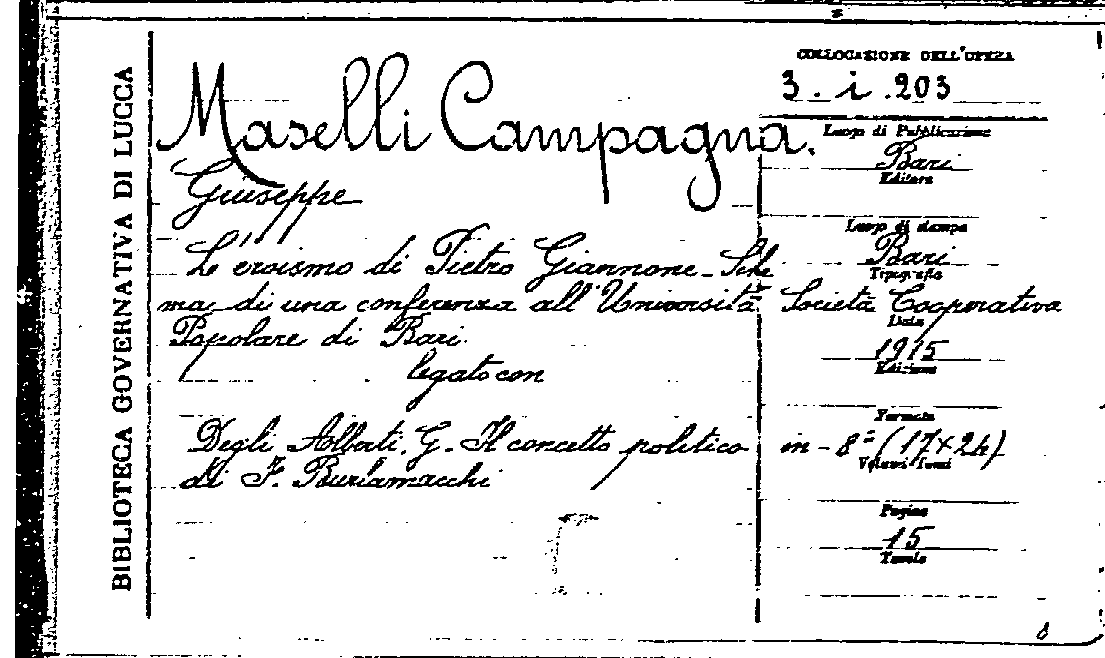 BIBLIOTECA GOVERNATIVA DI LUCCA
Maselli Campagna.
Giuseppe
L'eroismo di Pietro Giannone - Sche
ma di una conferenza all'Università
Popolare di Bari.
legato con
Degli Alberti G. - Il concetto politico
di F. Burlamacchi
COLLOCAZIONE DELL'OPERA
3. i. 203
Luogo di Pubblicazione
Bari
Editore
Luogo di stampa
Bari
Tipografia
Società Cooperativa
Data
1915
Edizione
Formato
in - 8º (17×24)
Volumi Tomi
Pagine
15
Tavole